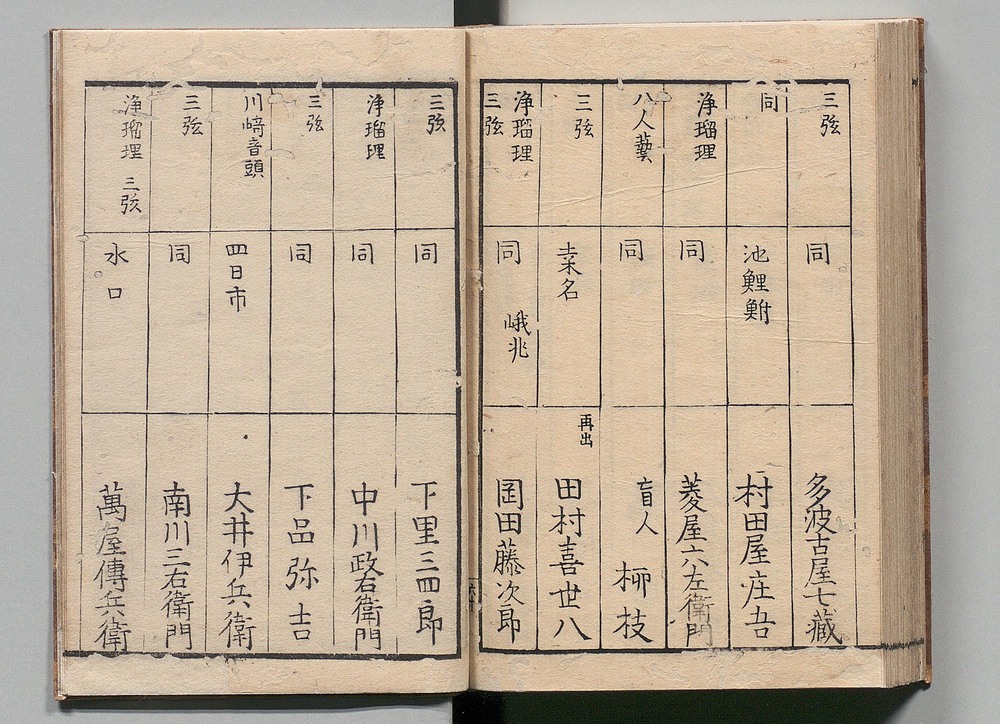 三弦 同 多波古屋七蔵
同 池鯉鮒 村田屋庄吾
浄瑠理 同 菱屋六左衛門
八人藝 同 盲人 柳枝
三弦 桒名 再出 田村喜世八
浄瑠理 三弦 同 峨兆 岡田藤次郎
三弦 同 下里三四郎
浄瑠理 同 中川政右衛門
三弦 同 下品弥吉
川﨑音頭 四日市 大井伊兵衛
三弦 同 南川三右衛門
浄瑠理 三弦 水口 萬屋傳兵衛